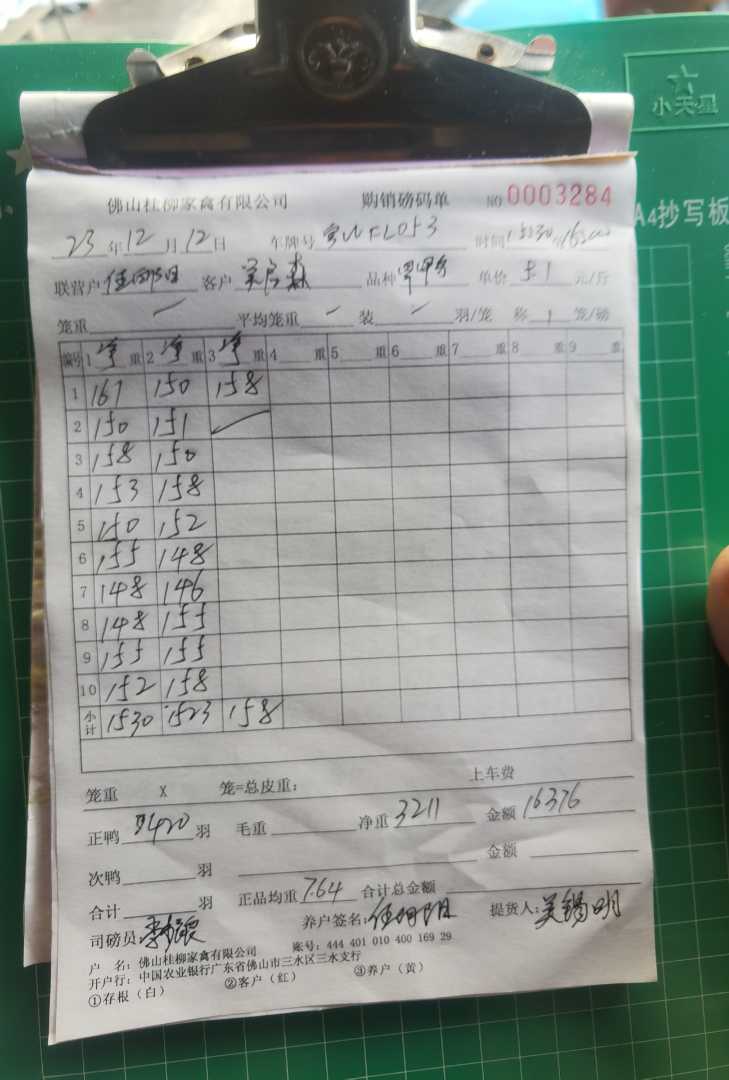 小天星
A4抄写板
佛山桂柳家禽有限公司 购销磅码单 NO 0003284
23 年 12 月 12 日 车牌号 时间
联营户 客户 品种 单价 5.1 元/斤
笼重 平均笼重 装 羽/笼 称 1 笼/磅
编号 1 净 重 2 净 重 3 净 重 4 重 5 重 6 重 7 重 8 重 9 重
1 161 150 158
2 150 151
3 158 150
4 153 158
5 150 152
6 155 148
7 148 146
8 148 155
9 155 155
10 152 158
小计 1530 1523 158
笼重 X 笼=总皮重: 上车费
正鸭 420 羽 毛重 净重 3211 金额 16376
次鸭 羽 金额
合计 羽 正品均重 7.64 合计总金额
司磅员: 养户签名: 提货人: 吴锡明
户 名: 佛山桂柳家禽有限公司 账号: 444 401 010 400 169 29
开户行: 中国农业银行广东省佛山市三水区三水支行
①存根(白) ②客户(红) ③养户(黄)